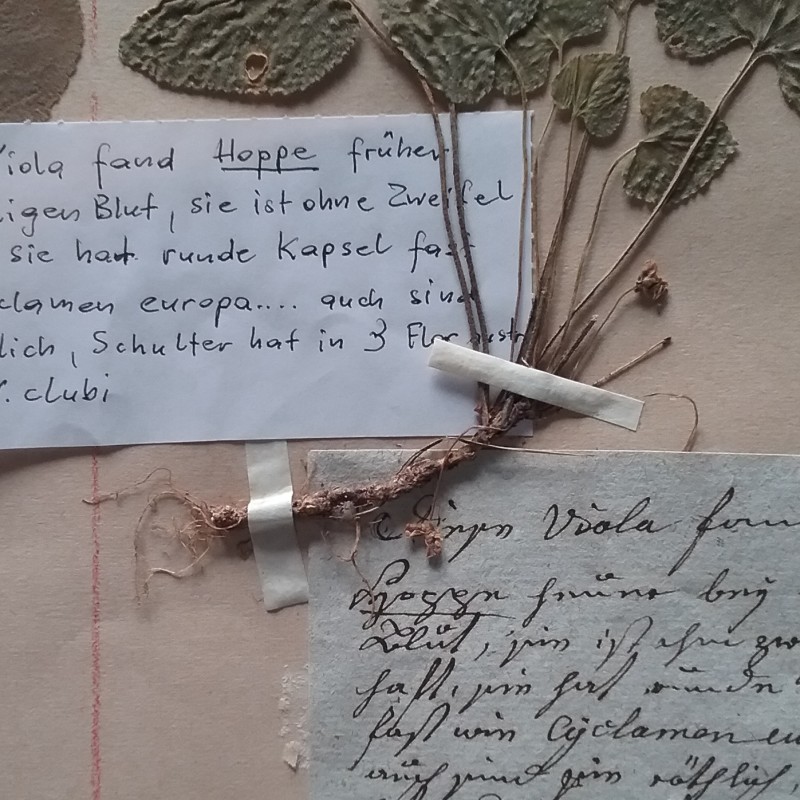 Viola fand Hoppe früher
igen Blut, sie ist ohne Zweifel
sie hat runde Kapsel fast
clamen europa.... auch sind
lich, Schulter hat in 3
V. clubi
Diesen Viola
Hoppe heuer bey
Blüt, sie ist ohne
haft, sie hat runde
fast wie Cÿclamen eu
auch sind sie röthlich,